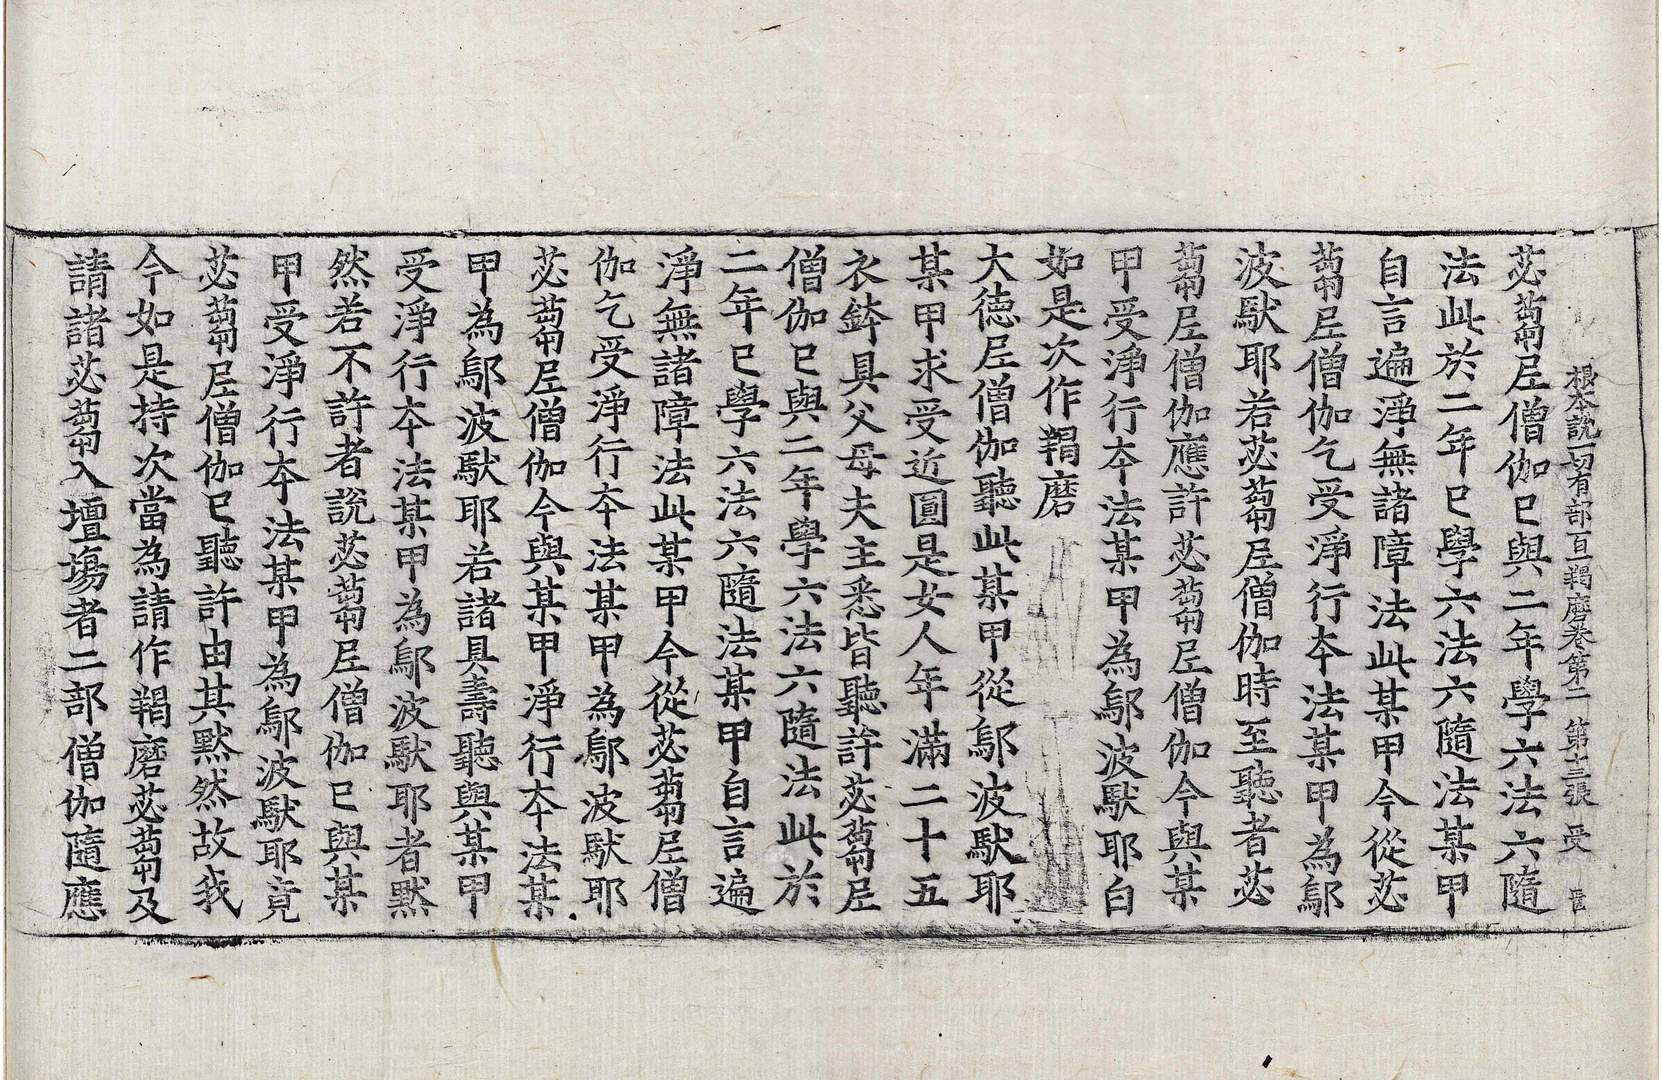 根本說一切有部百一羯磨卷第二 第十三張 受
苾芻尼僧伽已與二年學六法六隨
法此於二年已學六法六隨法某甲
自言遍淨無諸障法此某甲今從苾
芻尼僧伽乞受淨行本法某甲為鄔
波馱耶若苾芻尼僧伽時至聽者苾
芻尼僧伽應許苾芻尼僧伽今與某
甲受淨行本法某甲為鄔波馱耶白
如是次作羯磨
大德尼僧伽聽此某甲從鄔波馱耶
某甲求受近圓是女人年滿二十五
衣鉢具父母夫主悉皆聽許苾芻尼
僧伽已與二年學六法六隨法此於
二年已學六法六隨法某甲自言遍
淨無諸障法此某甲今從苾芻尼僧
伽乞受淨行本法某甲為鄔波馱耶
苾芻尼僧伽今與某甲淨行本法某
甲為鄔波馱耶若諸具壽聽與某甲
受淨行本法某甲為鄔波馱耶者默
然若不許者說苾芻尼僧伽已與某
甲受淨行本法某甲為鄔波馱耶竟
苾芻尼僧伽已聽許由其默然故我
今如是持次當為請作羯磨苾芻及
請諸苾芻入壇場者二部僧伽隨應